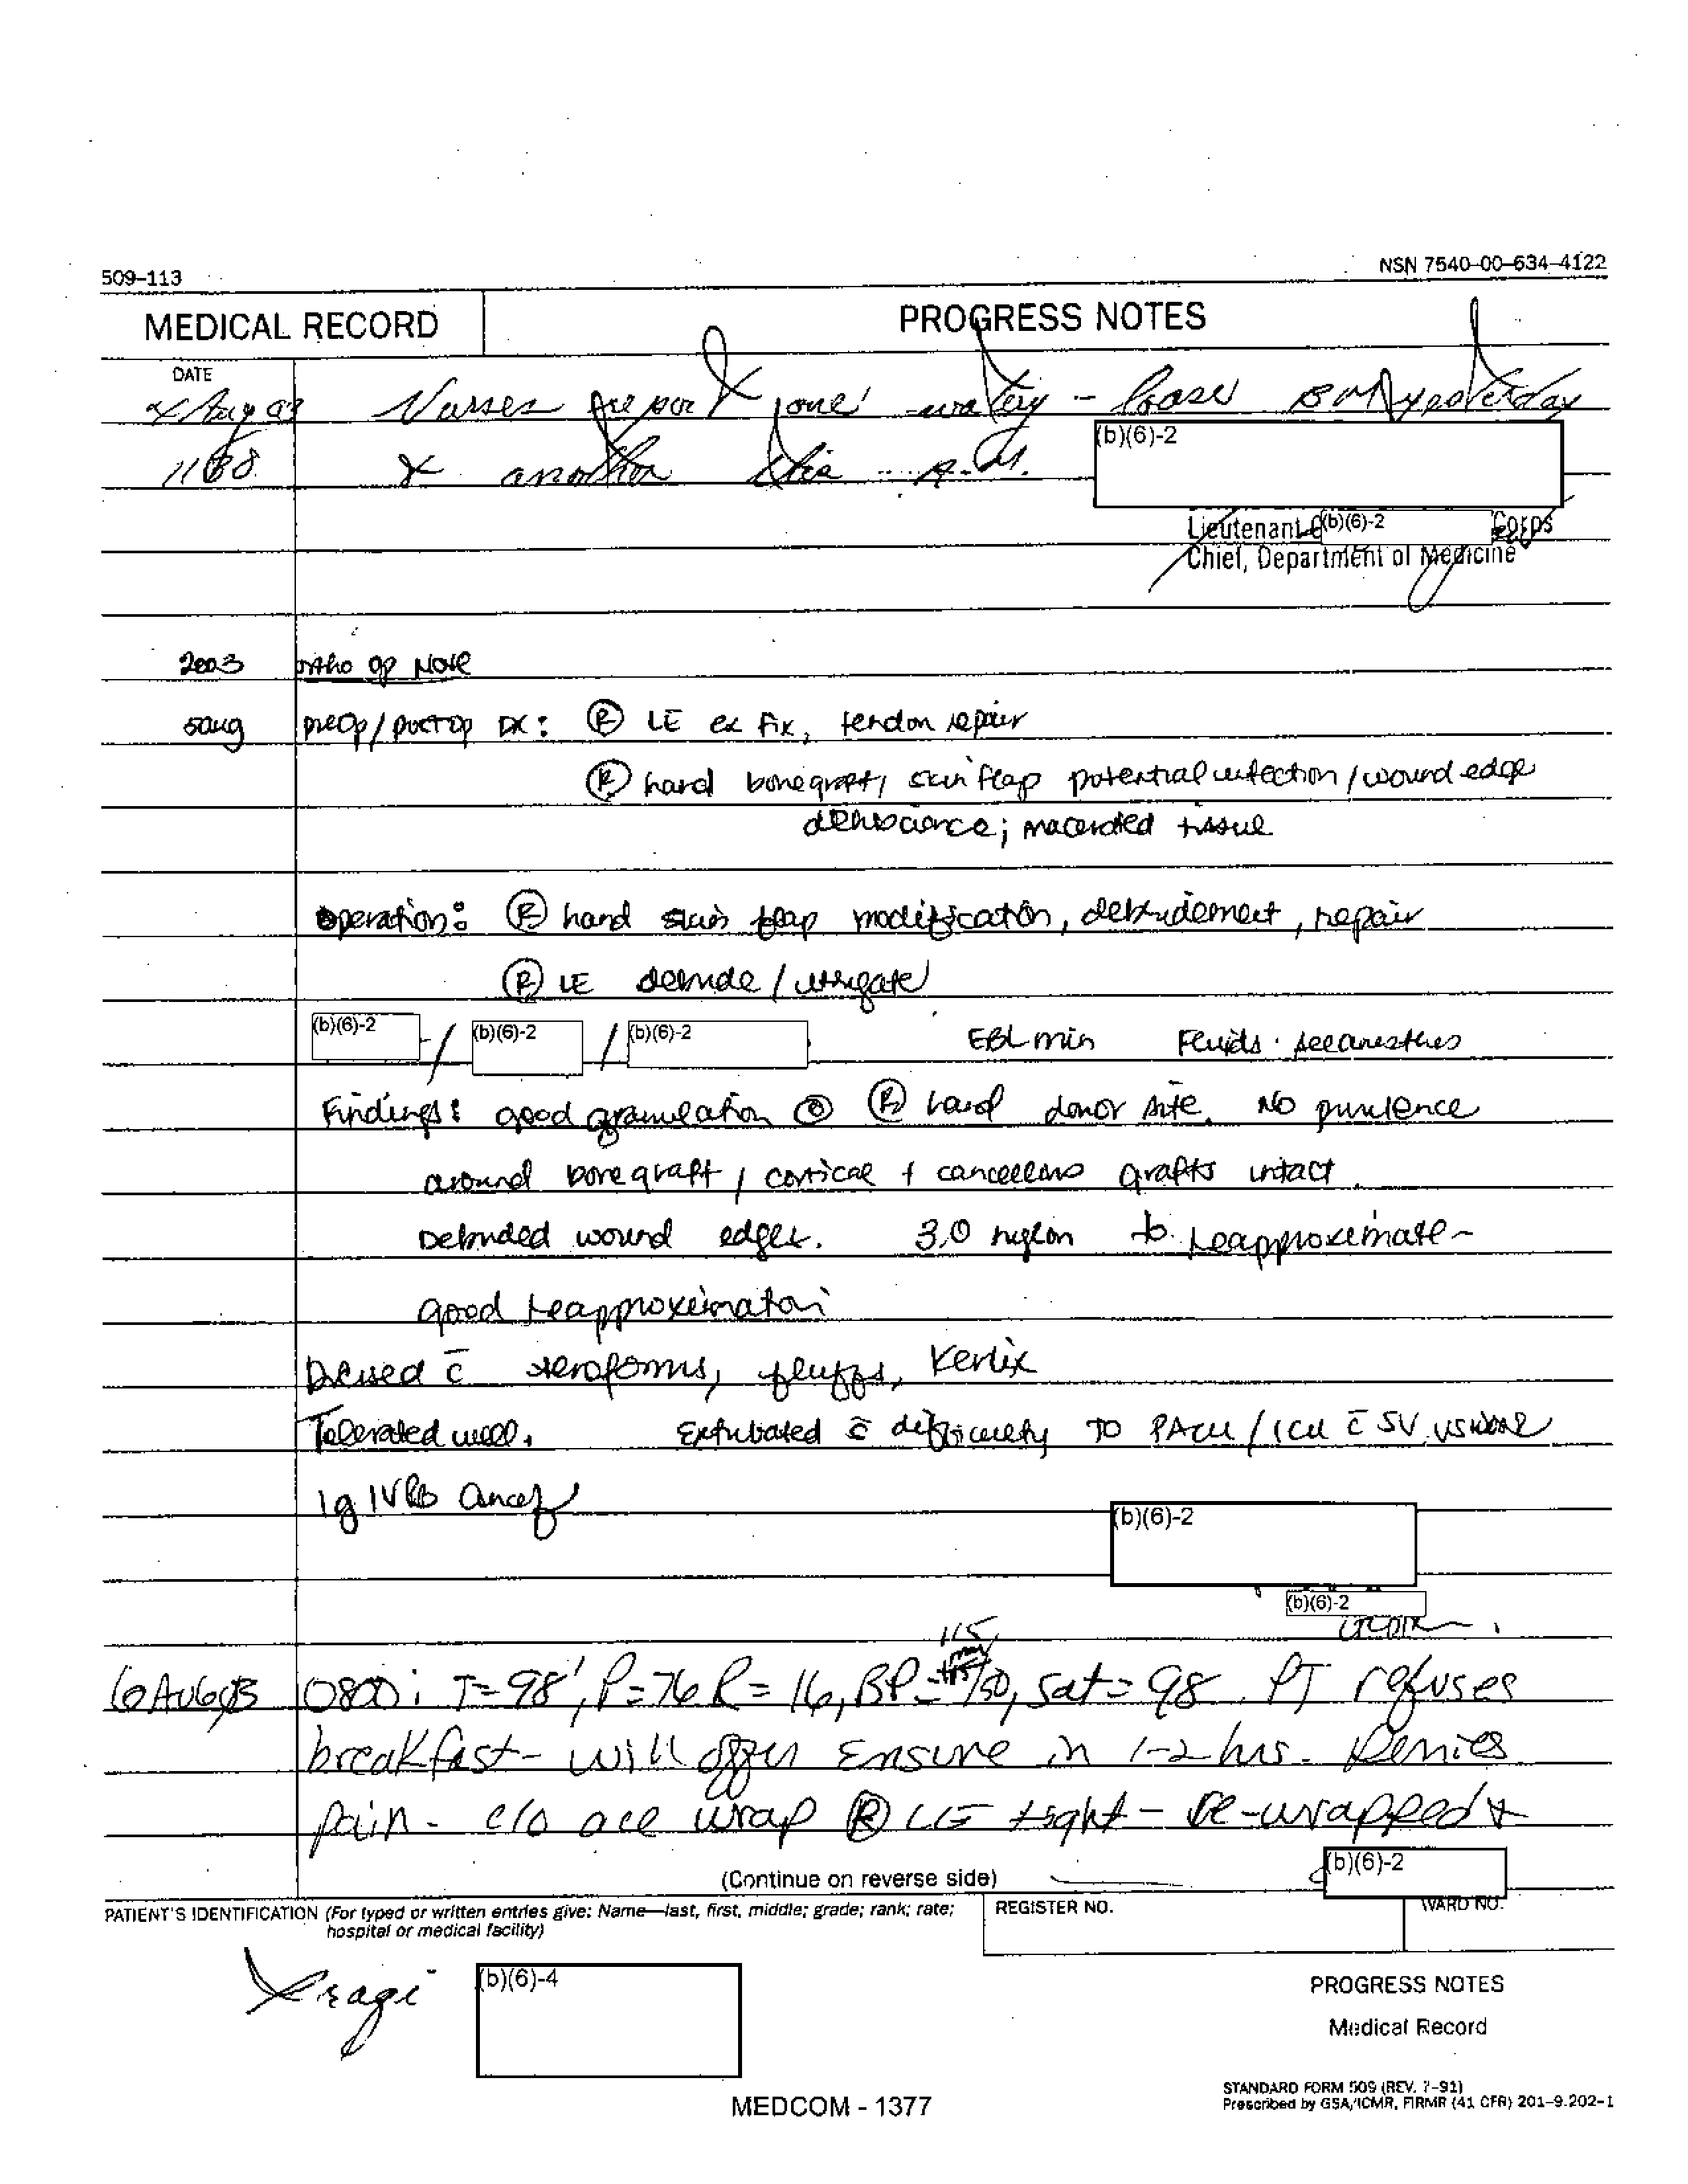 509-113
NSN 7540-00-634-4122
MEDICAL RECORD
PROGRESS NOTES
DATE
4 Aug 03 Nurses report one watery - loose BM yesterday
& another this A.M.
(b)(6)-2
Lieutenant (b)(6)-2 Corps
Chief, Department of Medicine
2003 ortho op Note
5aug preop/postop DX: Ⓡ LE ex fix, tendon repair
Ⓡ hand bonegraft, skin flap potential infection/wound edge
dehiscence; macerated tissue
operation: Ⓡ hand skin flap modification, debridement, repair
Ⓡ LE debride / irrigate
(b)(6)-2 / (b)(6)-2 / (b)(6)-2 EBL min Fluids: see anesthes
Findings: good granulation Ⓡ hand donor site. No purulence
around bonegraft, cortical + cancellous grafts intact.
Debrided wound edges. 3.0 nylon to reapproximate -
good reapproximation
Dressed c̄ xeroforms, fluffs, Kerlix
Tolerated well. Extubated difficulty TO PACU/ICU c̄ SV,
1g IVPB Ancef
(b)(6)-2
(b)(6)-2
115
6Aug03 0800: T=98', P=76 R=16, BP= /50, sat=98. PT refuses
breakfast- will offer Ensure in 1-2 hrs. Denies
pain- c/o ace wrap Ⓡ LE tight- re-wrapped &
(b)(6)-2
(Continue on reverse side)
PATIENT'S IDENTIFICATION (For typed or written entries give: Name—last, first, middle; grade; rank; rate;
hospital or medical facility)
REGISTER NO.
WARD NO.
Iraqi
(b)(6)-4
PROGRESS NOTES
Medical Record
STANDARD FORM 509 (REV. 7-91)
Prescribed by GSA/ICMR, FIRMR (41 CFR) 201-9.202-1
MEDCOM - 1377